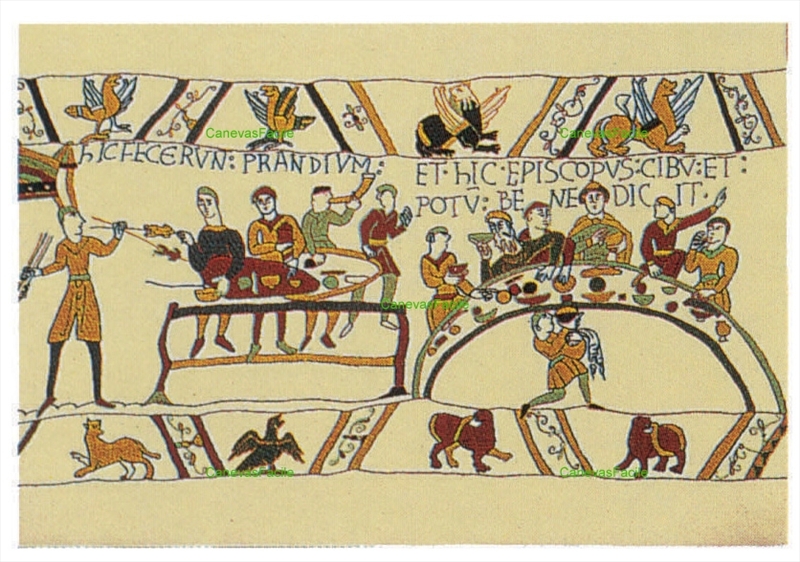 hIC FECERVN: PRANDIVM:
ET· hIC· EPISCOPVS: CIBV: ET:
POTV̄: BE NE DIC IT·
CanevasFacile
CanevasFacile
CanevasFacile
CanevasFacile
CanevasFacile